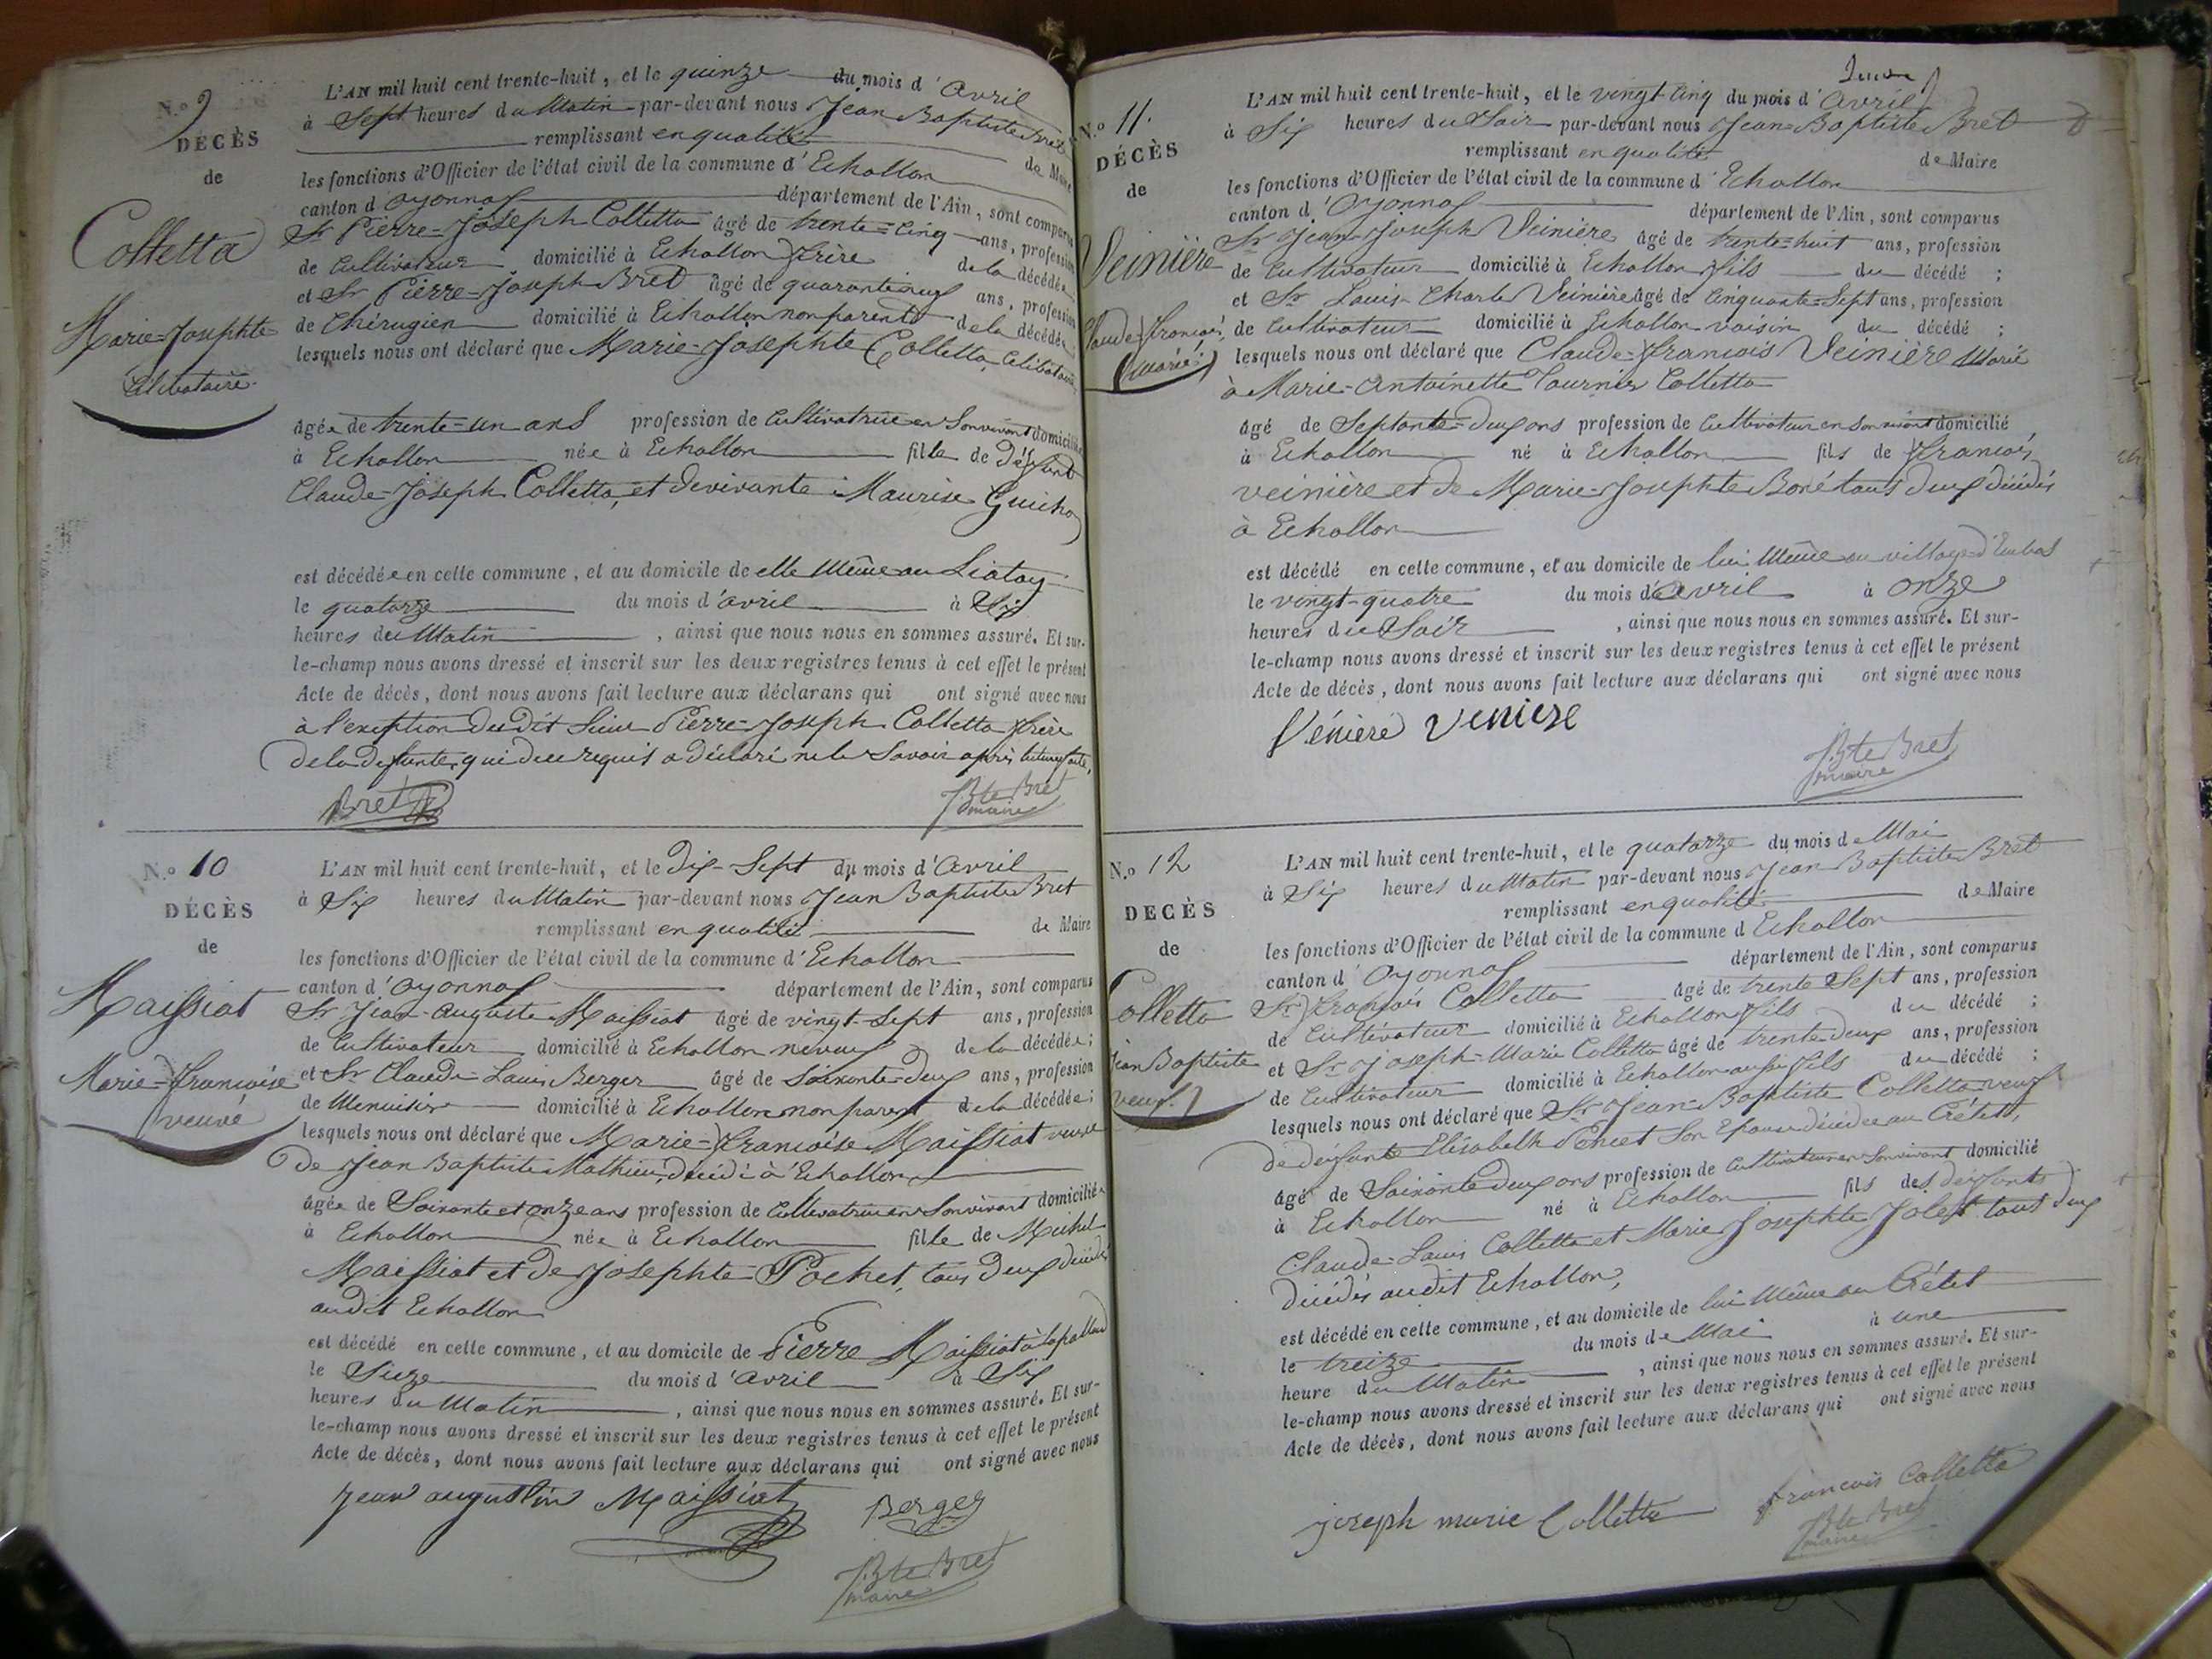 N.o 9
DÉCÈS
de
Colletta
Marie=Josephte
Célibataire.
L'AN mil huit cent trente-huit, et le quinze du mois d'Avril
à Sept heures du Matin par-devant nous Jean Baptiste Bret
remplissant en qualité de Maire
les fonctions d'Officier de l'état civil de la commune d'Echallon
canton d'Oyonnas département de l'Ain, sont comparus
Sr Pierre=Joseph Colletta âgé de trente=cinq ans, profession
de Cultivateur domicilié à Echallon frère de la décédée
et Sr Pierre=Joseph Bret âgé de quarante neuf ans, profession
de Chérugien domicilié à Echallon non parent de la décédée;
lesquels nous ont déclaré que Marie-Josephte Colletta, Celibataire
âgée de trente=un ans profession de Cultivatrice en Son vivant domiciliée
à Echallon née à Echallon fille de Défunt
Claude-Joseph Colletta, et de vivante Maurise Guicho
est décédée en cette commune, et au domicile de elle Même au
le quatorze du mois d'avril à Six
heures du Matin, ainsi que nous nous en sommes assuré. Et sur-
le-champ nous avons dressé et inscrit sur les deux registres tenus à cet effet le présent
Acte de décès, dont nous avons fait lecture aux déclarans qui ont signé avec nous
à l'exeption du dit Sieur Pierre-Joseph Colletta frère
de la defunte, qui de ce requis a déclaré ne le Savoir après lecture faite.
Bret
J Bte Bret
maire
N.o 10
DÉCÈS
de
Maissiat
Marie=Françoise
veuve
L'AN mil huit cent trente-huit, et le Dix-Sept du mois d'Avril
à Six heures du Matin par-devant nous Jean Baptiste Bret
remplissant en qualité de Maire
les fonctions d'Officier de l'état civil de la commune d'Echallon
canton d'Oyonnas département de l'Ain, sont comparus
Sr Jean-Auguste Maissiat âgé de vingt-Sept ans, profession
de Cultivateur domicilié à Echallon neveux de la décédée;
et Sr Claude-Louis Berger âgé de Soixante-deux ans, profession
de Menuisier domicilié à Echallon non parent de la décédée;
lesquels nous ont déclaré que Marie-Françoise Maissiat veuve
De Jean Baptiste Mathieu, décédé à Echallon
âgée de Soixante et onze ans profession de Cultivatrice en Son vivant domiciliée
à Echallon née à Echallon fille de Michel
Maissiat et de Josephte Pochet, tous deux décédés
audit Echallon
est décédé en cette commune, et au domicile de Pierre Maissiat
le Sieze du mois d'avril à Six
heures du Matin, ainsi que nous nous en sommes assuré. Et sur-
le-champ nous avons dressé et inscrit sur les deux registres tenus à cet effet le présent
Acte de décès, dont nous avons fait lecture aux déclarans qui ont signé avec nous
jean augustin Maissiat Berger
J Bte Bret
maire
N.o 11.
DÉCÈS
de
Veinière
Claude=François,
(marié.)
L'AN mil huit cent trente-huit, et le vingt-Cinq du mois d'Avril
à Six heures du Soir par-devant nous Jean-Baptiste Bret
remplissant en qualité de Maire
les fonctions d'Officier de l'état civil de la commune d'Echallon
canton d'Oyonnas département de l'Ain, sont comparus
Sr Jean-Joseph Veinière âgé de trente=huit ans, profession
de Cultivateur domicilié à Echallon fils du décédé;
et Sr Louis-Charle Veinière âgé de Cinquante=Sept ans, profession
de Cultivateur domicilié à Echallon voisin du décédé;
lesquels nous ont déclaré que Claude=François Veinière Marié
à Marie-Antoinette Tournier Colletta
âgé de Septante=deux ans profession de Cultivateur en son vivant domicilié
à Echallon né à Echallon fils de François
veinière et de Marie-Josephte Boré tous deux décédés
à Echallon
est décédé en cette commune, et au domicile de lui Même au village d'Embas
le vingt-quatre du mois d'Avril à onze
heures du Soir, ainsi que nous nous en sommes assuré. Et sur-
le-champ nous avons dressé et inscrit sur les deux registres tenus à cet effet le présent
Acte de décès, dont nous avons fait lecture aux déclarans qui ont signé avec nous
Vénière Veniere
J Bte Bret
maire
N.o 12
DÉCÈS
de
Colletta
Jean Baptiste
veuf.
L'AN mil huit cent trente-huit, et le quatorze du mois de Mai
à Six heures du Matin par-devant nous Jean Baptiste Bret
remplissant en qualité de Maire
les fonctions d'Officier de l'état civil de la commune d Echallon
canton d'Oyonnas département de l'Ain, sont comparus
Sr François Colletta âgé de trente Sept ans, profession
de Cultivateur domicilié à Echallon fils du décédé;
et Sr Joseph-Marie Colletta âgé de trente deux ans, profession
de Cultivateur domicilié à Echallon aussi fils du décédé;
lesquels nous ont déclaré que Sr Jean-Baptiste Colletta veuf
de défunte Elisabelh Poncet Son Epouse décédée au Crétet,
âgé de Soixante deux ans profession de Cultivateur en Son vivant domicilié
à Echallon né à Echallon fils des défunts
Claude-Louis Colletta et Marie Josephte tous deux
décédés audit Echallon,
est décédé en cette commune, et au domicile de lui Même au Crétet
le treize du mois de Mai à une
heure du Matin, ainsi que nous nous en sommes assuré. Et sur-
le-champ nous avons dressé et inscrit sur les deux registres tenus à cet effet le présent
Acte de décès, dont nous avons fait lecture aux déclarans qui ont signé avec nous
joseph marie Colletta françois Colletta
J Bte Bret
maire